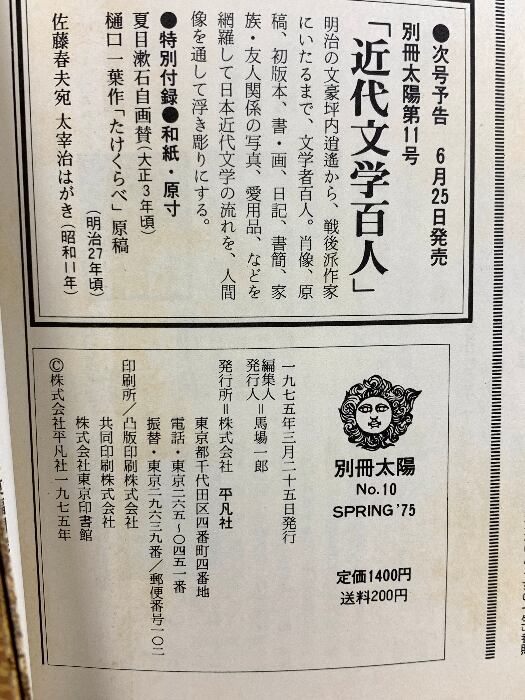 ●次号予告 6月25日発売
別冊太陽第11号
「近代文学百人」
明治の文豪坪内逍遙から、戦後派作家
にいたるまで、文学者百人。肖像、原
稿、初版本、書・画、日記、書簡、家
族・友人関係の写真、愛用品、などを
網羅して日本近代文学の流れを、人間
像を通して浮き彫りにする。
●特別付録●和紙・原寸
夏目漱石自画賛(大正3年頃)
樋口一葉作「たけくらべ」原稿
(明治27年頃)
佐藤春夫宛 太宰治はがき(昭和11年)
別冊太陽
No.10
SPRING '75
定価1400円
送料200円
一九七五年三月二十五日発行
編集人
発行人=馬場一郎
発行所=株式会社 平凡社
東京都千代田区四番町四番地
電話・東京二六五〜〇四五一番
振替・東京二九六三九番/郵便番号一〇二
印刷所/凸版印刷株式会社
共同印刷株式会社
株式会社東京印書館
©株式会社平凡社一九七五年